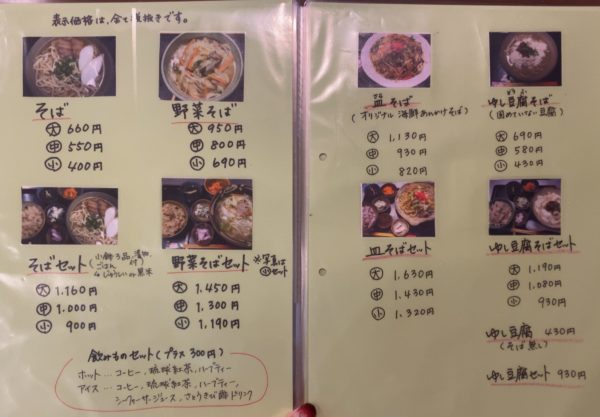 表示価格は、全て税抜きです。
そば
大 660円
中 550円
小 400円
野菜そば
大 950円
中 800円
小 690円
そばセット
(小鉢3品、漬物、
ごはん
じゅうしぃ or 黒米
大 1,160円
中 1,000円
小 900円
野菜そばセット
※写真は
小セット
大 1,450円
中 1,300円
小 1,190円
飲みものセット(プラス300円)
ホット…コーヒー、琉球紅茶、ハーブティー
アイス…コーヒー、琉球紅茶、ハーブティー、
シークヮーサージュース、さとうきび酢ドリンク
皿そば
(オリジナル海鮮あんかけそば)
大 1,130円
中 930円
小 820円
ゆし豆腐そば
(固めていない豆腐)
大 690円
中 580円
小 430円
皿そばセット
大 1,630円
中 1,430円
小 1,320円
ゆし豆腐そばセット
大 1,190円
中 1,080円
小 930円
ゆし豆腐 430円
(そば無し)
ゆし豆腐セット 930円